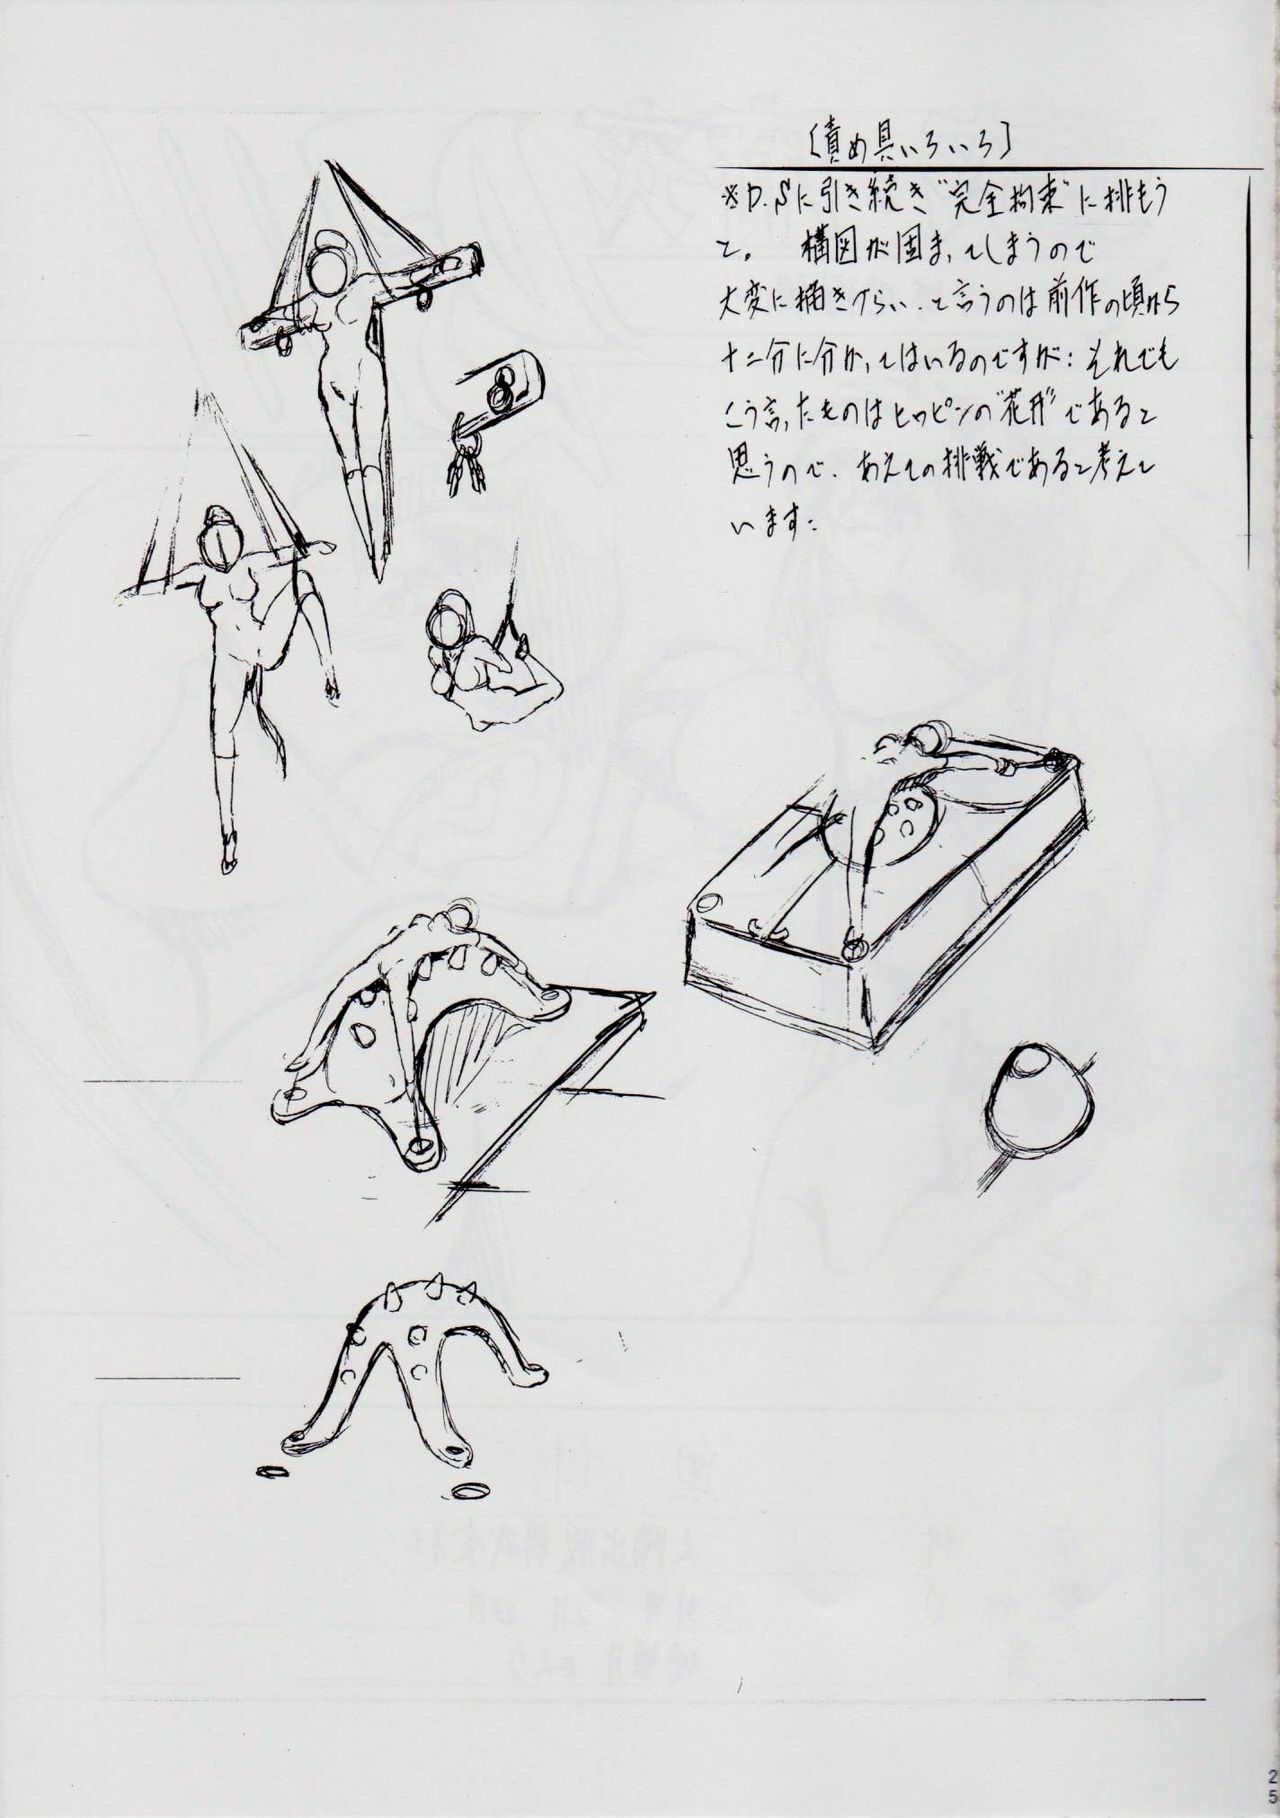 〔責め具いろいろ〕
※D.Sに引き続き"完全拘束"に挑もう
と。 構図が固まってしまうので
大変に描きづらい、と言うのは前作の頃から
十二分に分かってはいるのですが… それでも
こう言ったものはヒロピンの"花形"であると
思うので、あえての挑戦であると考えて
います…
25